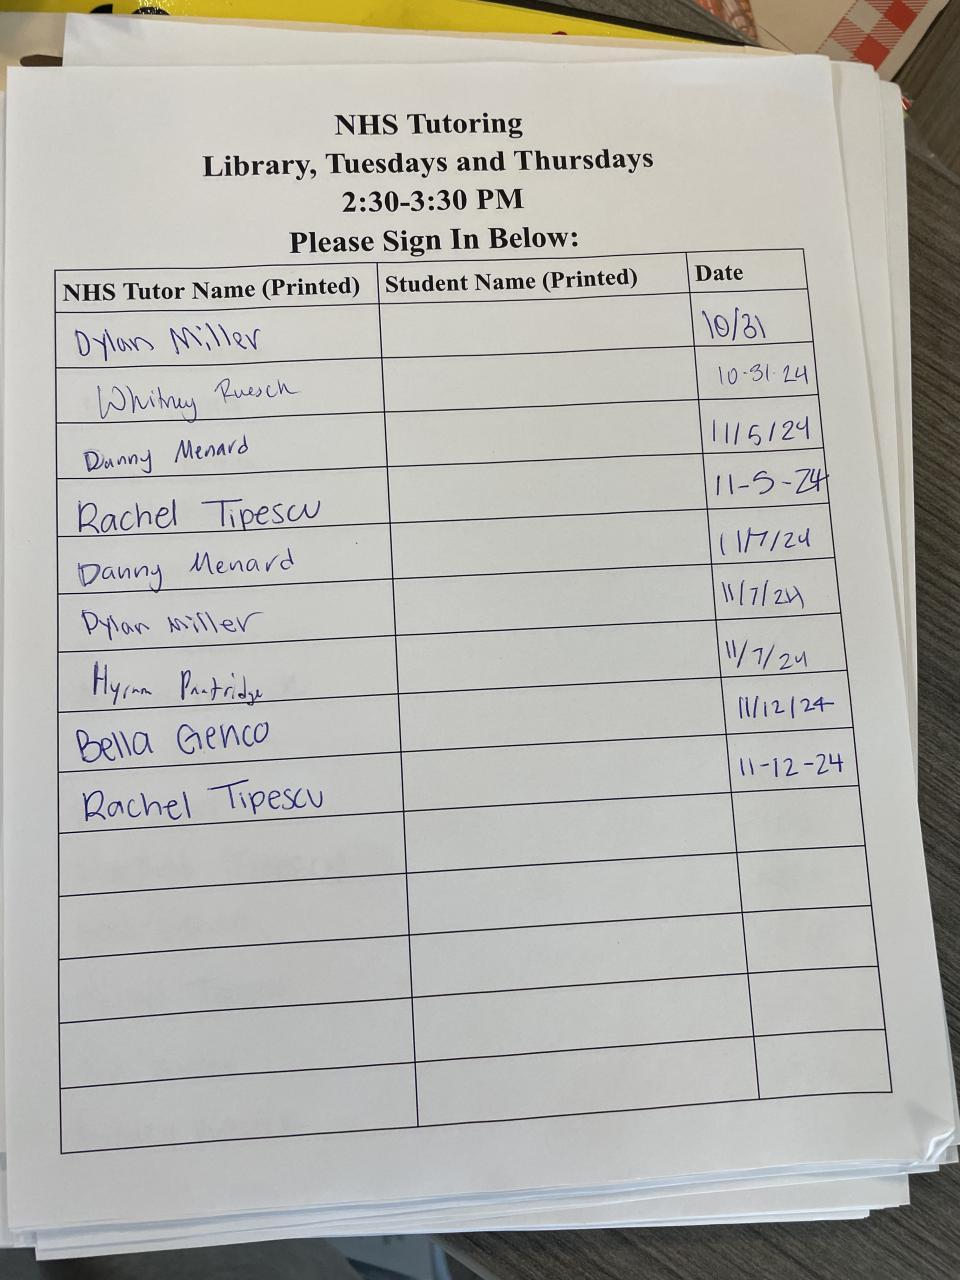 NHS Tutoring
Library, Tuesdays and Thursdays
2:30-3:30 PM
Please Sign In Below:
NHS Tutor Name (Printed) Student Name (Printed) Date
Dylan Miller 10/31
Whitney Ruesch 10-31-24
Danny Menard 11/5/24
Rachel Tipescu 11-5-24
Danny Menard 11/7/24
Dylan Miller 11/7/24
Hyrum Partridge 11/7/24
Bella Genco 11/12/24
Rachel Tipescu 11-12-24